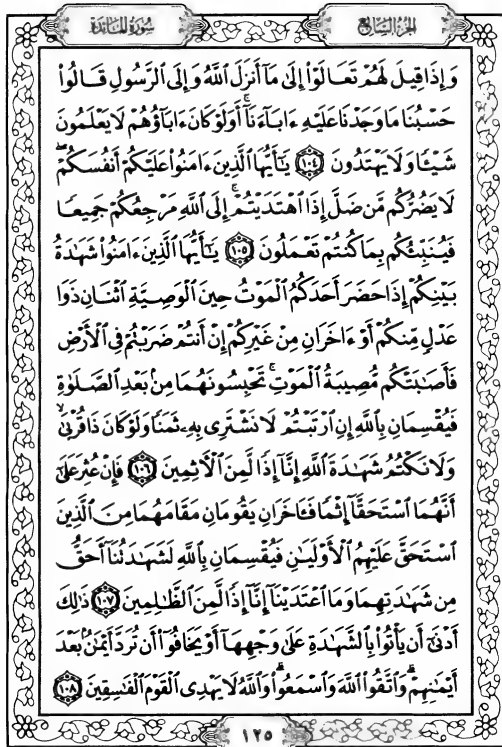 سُورَةُ المَائدة
الجزء السابع
وَإِذَا قِيلَ لَهُمۡ تَعَالَوۡاْ إِلَىٰ مَآ أَنزَلَ ٱللَّهُ وَإِلَى ٱلرَّسُولِ قَالُواْ
حَسۡبُنَا مَا وَجَدۡنَا عَلَيۡهِ ءَابَآءَنَآۚ أَوَلَوۡ كَانَ ءَابَآؤُهُمۡ لَا يَعۡلَمُونَ
شَيۡـٔٗا وَلَا يَهۡتَدُونَ ١٠٤ يَـٰٓأَيُّهَا ٱلَّذِينَ ءَامَنُواْ عَلَيۡكُمۡ أَنفُسَكُمۡۖ
لَا يَضُرُّكُم مَّن ضَلَّ إِذَا ٱهۡتَدَيۡتُمۡۚ إِلَى ٱللَّهِ مَرۡجِعُكُمۡ جَمِيعٗا
فَيُنَبِّئُكُم بِمَا كُنتُمۡ تَعۡمَلُونَ ١٠٥ يَـٰٓأَيُّهَا ٱلَّذِينَ ءَامَنُواْ شَهَٰدَةُ
بَيۡنِكُمۡ إِذَا حَضَرَ أَحَدَكُمُ ٱلۡمَوۡتُ حِينَ ٱلۡوَصِيَّةِ ٱثۡنَانِ ذَوَا
عَدۡلٖ مِّنكُمۡ أَوۡ ءَاخَرَانِ مِنۡ غَيۡرِكُمۡ إِنۡ أَنتُمۡ ضَرَبۡتُمۡ فِي ٱلۡأَرۡضِ
فَأَصَٰبَتۡكُم مُّصِيبَةُ ٱلۡمَوۡتِۚ تَحۡبِسُونَهُمَا مِنۢ بَعۡدِ ٱلصَّلَوٰةِ
فَيُقۡسِمَانِ بِٱللَّهِ إِنِ ٱرۡتَبۡتُمۡ لَا نَشۡتَرِي بِهِۦ ثَمَنٗا وَلَوۡ كَانَ ذَا قُرۡبَىٰ
وَلَا نَكۡتُمُ شَهَٰدَةَ ٱللَّهِ إِنَّآ إِذٗا لَّمِنَ ٱلۡأٓثِمِينَ ١٠٦ فَإِنۡ عُثِرَ عَلَىٰٓ
أَنَّهُمَا ٱسۡتَحَقَّآ إِثۡمٗا فَـَٔاخَرَانِ يَقُومَانِ مَقَامَهُمَا مِنَ ٱلَّذِينَ
ٱسۡتَحَقَّ عَلَيۡهِمُ ٱلۡأَوۡلَيَٰنِ فَيُقۡسِمَانِ بِٱللَّهِ لَشَهَٰدَتُنَآ أَحَقُّ
مِن شَهَٰدَتِهِمَا وَمَا ٱعۡتَدَيۡنَآ إِنَّآ إِذٗا لَّمِنَ ٱلظَّٰلِمِينَ ١٠٧ ذَٰلِكَ
أَدۡنَىٰٓ أَن يَأۡتُواْ بِٱلشَّهَٰدَةِ عَلَىٰ وَجۡهِهَآ أَوۡ يَخَافُوٓاْ أَن تُرَدَّ أَيۡمَٰنُۢ بَعۡدَ
أَيۡمَٰنِهِمۡۗ وَٱتَّقُواْ ٱللَّهَ وَٱسۡمَعُواْۗ وَٱللَّهُ لَا يَهۡدِي ٱلۡقَوۡمَ ٱلۡفَٰسِقِينَ ١٠٨
١٢٥